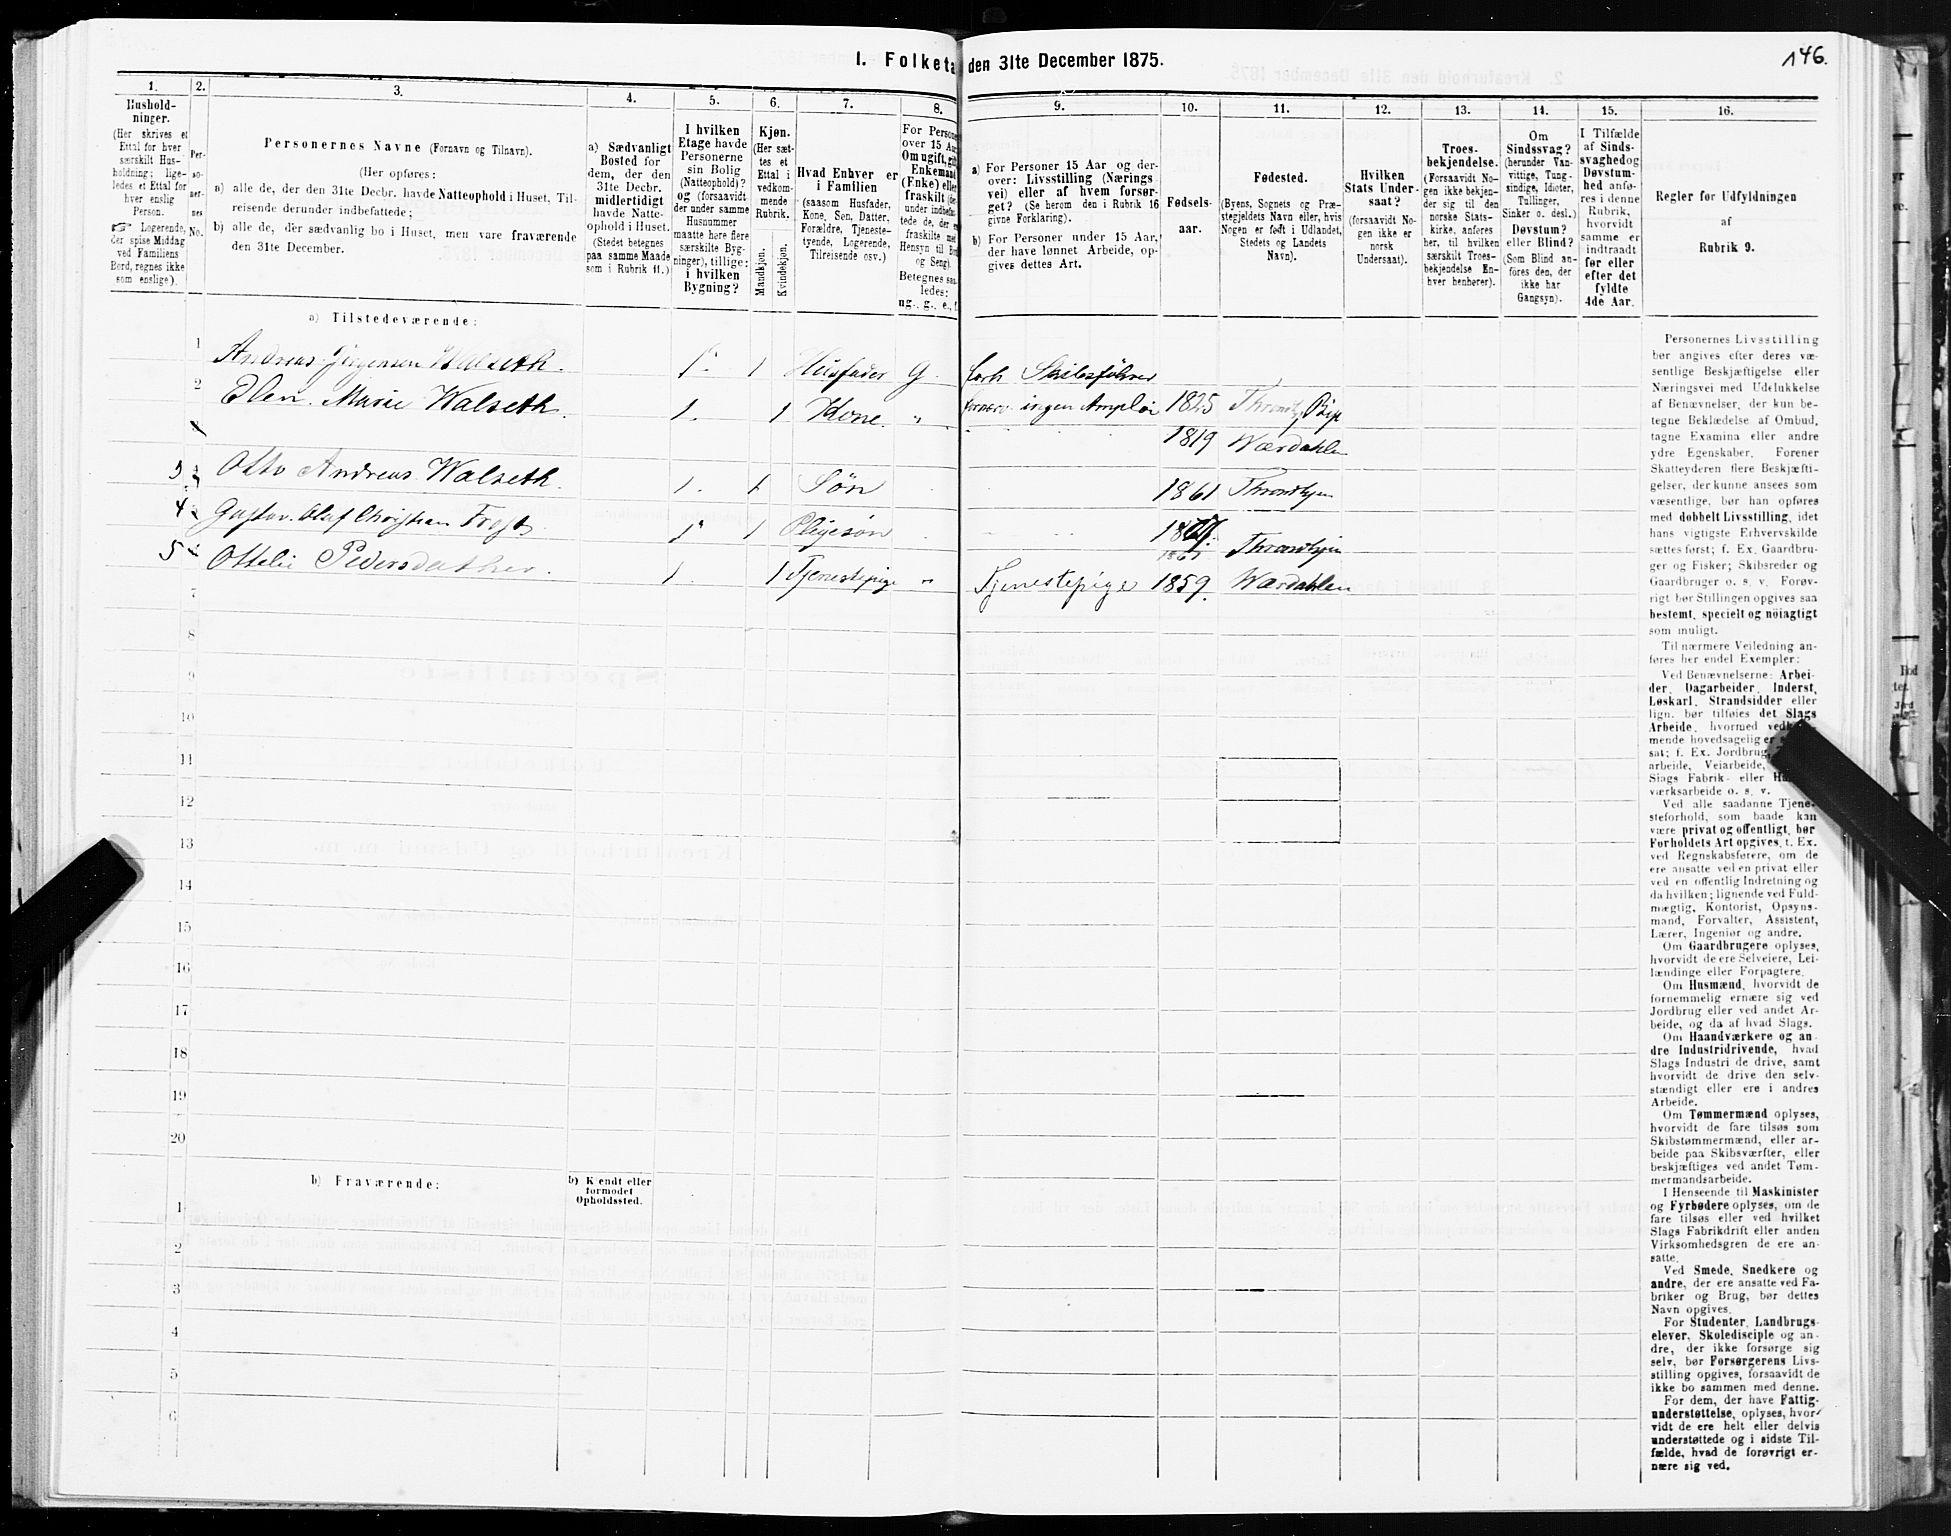 146.
I. Folketa den 31te December 1875.
1.
Hushold-
ninger.
(Her skrives et
Ettal for hver
særskilt Hus-
holdning; lige-
ledes et Ettal for
hver enslig
Person.
Logerende,
der spise Middag
ved Familiens
Bord, regnes ikke
som enslige).
2.
Per-
so-
ner-
nes
No.
3.
Personernes Navne (Fornavn og Tilnavn).
(Her opføres:
a) alle de, der den 31te Decbr. havde Natteophold i Huset, Til-
reisende derunder indbefattede;
b) alle de, der sædvanlig bo i Huset, men vare fraværende
den 31te December.
4.
a) Sædvanligt
Bosted for
dem, der den
31te Decbr.
midlertidigt
havde Natte-
ophold i Huset.
(Stedet betegnes
paa samme Maade
som i Rubrik 11.)
5.
I hvilken
Etage havde
Personerne
sin Bolig
(Natteophold)?
og (forsaavidt
der under samme
Husnummer
maatte høre flere
særskilte Byg-
ninger), tillige:
i hvilken
Bygning?
6.
Kjøn.
(Her sæt-
tes et
Ettal i
vedkom-
mende
Rubrik.
Mandkjøn.
Kvindekjøn.
7.
Hvad Enhver er
i Familien
(saasom Husfader,
Kone, Søn, Datter,
Forældre, Tjeneste-
tyende, Logerende,
Tilreisende osv.)
8.
For Persone
over 15 Aar
Om ugift, gift
Enkemand
(Enke) elle
fraskilt (de
under indbefat-
tede de, der e
fraskilte med
Hensyn til Bo
og Seng).
Betegnes saa-
ledes:
ug., g., e., f.
9.
a) For Personer 15 Aar og der-
over: Livsstilling (Nærings
vei) eller af hvem forsør-
get? (Se herom den i Rubrik 16
givne Forklaring).
b) For Personer under 15 Aar,
der have lønnet Arbeide, op-
gives dettes Art.
10.
Fødsels-
aar.
11.
Fødested.
(Byens, Sognets og Præ-
stegjeldets Navn eller, hvis
Nogen er født i Udlandet,
Stedets og Landets
Navn).
12.
Hvilken
Stats Under-
saat?
(forsaavidt No-
gen ikke er
norsk
Undersaat).
13.
Troes-
bekjendelse.
(Forsaavidt No-
gen ikke bekjen-
der sig til den
norske Stats-
kirke, anføres
her, til hvilken
særskilt Troes-
bekjendelse En-
hver henhører).
14.
Om
Sindssvag?
(herunder Van-
vittige, Tung-
sindige, Idioter,
Tullinger,
Sinker o. desl.)
Døvstum?
eller Blind?
(Som Blind an-
føres den, der
ikke har
Gangsyn).
15.
I Tilfælde
af Sinds-
svaghed og
Døvstum-
hed anfø-
res i denne
Rubrik,
hvorvidt
samme er
indtraadt
før eller
efter det
fyldte
4de Aar.
16.
Regler for Udfyldningen
af
Rubrik 9.
a) Tilstedeværende:
1 Andreas Jørgensen Walseth. 1. 1 Husfader G. forh Skibsfører
2 Elen. Marie Walseth. 1. 1 Kone. " ingen 1825 Throndhj
1819 Wærdahlen
3 Otto Andreas Walseth. 1. 1 Søn 1861 Throndhjem
4 Gustav. Olaf Christian Frost 1 1 Pleiesøn Throndhjem
5 Ottelie Pedersdather. 1. 1 Tjenestepige " Tjenestepige 1859. Wærdahlen
7
8
9
10
11
12
13
14
15
16
17
18
19
20
b) Fraværende:
b) Kjendt eller
formodet
Opholdssted.
1
2
3
4
5
6
Personernes Livsstilling
bør angives efter deres væ-
sentlige Beskjæftigelse eller
Næringsvei med Udelukkelse
af Benævnelser, der kun be-
tegne Beklædelse af Ombud,
tagne Examina eller andre
ydre Egenskaber. Forener
Skatteyderen flere Beskjæfti-
gelser, der kunne ansees som
væsentlige, bør han opføres
med dobbelt Livsstilling, idet
hans vigtigste Erhvervskilde
sættes først; f. Ex. Gaardbru-
ger og Fisker; Skibsreder og
Gaardbruger o. s. v. Forøv-
rigt bør Stillingen opgives saa
bestemt, specielt og nøiagtigt
som muligt.
Til nærmere Veiledning an-
føres her endel Exempler:
Ved Benævnelserne: Arbei-
der, Dagarbeider, Inderst,
Løskarl, Strandsidder eller
lign. bør tilføies det Slags
Arbeide, hvormed vedkom-
mende hovedsagelig er
sat; f. Ex. Jordbrug,
arbeide, Veiarbeide,
Slags Fabrik- eller
værksarbeide o. s. v.
Ved alle saadanne Tjene-
steforhold, som baade kan
være privat og offentligt, bør
Forholdets Art opgives, f. Ex.
ved Regnskabsførere, om de
ere ansatte ved en privat eller
ved en offentlig Indretning og
da hvilken; lignende ved Fuld-
mægtig, Kontorist, Opsyns-
mand, Forvalter, Assistent,
Lærer, Ingeniør og andre.
Om Gaardbrugere oplyses,
hvorvidt de ere Selveiere, Lei-
lændinge eller Forpagtere.
Om Husmænd, hvorvidt de
fornemmelig ernære sig ved
Jordbrug eller ved andet Ar-
beide, og da af hvad Slags.
Om Haandværkere og an
dre Industridrivende, hvad
Slags Industri de drive, samt
hvorvidt de drive den selv-
stændigt eller ere i andres
Arbeide.
Om Tømmermænd oplyses,
hvorvidt de fare tilsøs som
Skibstømmermænd, eller ar-
beide paa Skibsværfter, eller
beskjæftiges ved andet Tøm-
mermandsarbeide.
I Henseende til Maskinister
og Fyrbødere oplyses, om de
fare tilsøs eller ved hvilket
Slags Fabrikdrift eller anden
Virksomhedsgren de ere an-
satte.
Ved Smede, Snedkere og
andre, der ere ansatte ved Fa-
briker og Brug, bør dettes
Navn opgives.
For Studenter, Landbrugs-
elever, Skoledisciple og an-
dre, der ikke forsørge sig
selv, bør Forsørgerens Livs-
stilling opgives, forsaavidt de
ikke bo sammen med denne.
For dem, der have Fattig-
understøttelse, oplyses, hvor-
vidt de ere helt eller delvis
understøttede og i sidste Til-
fælde, hvad de forøvrigt er-
nære sig ved.